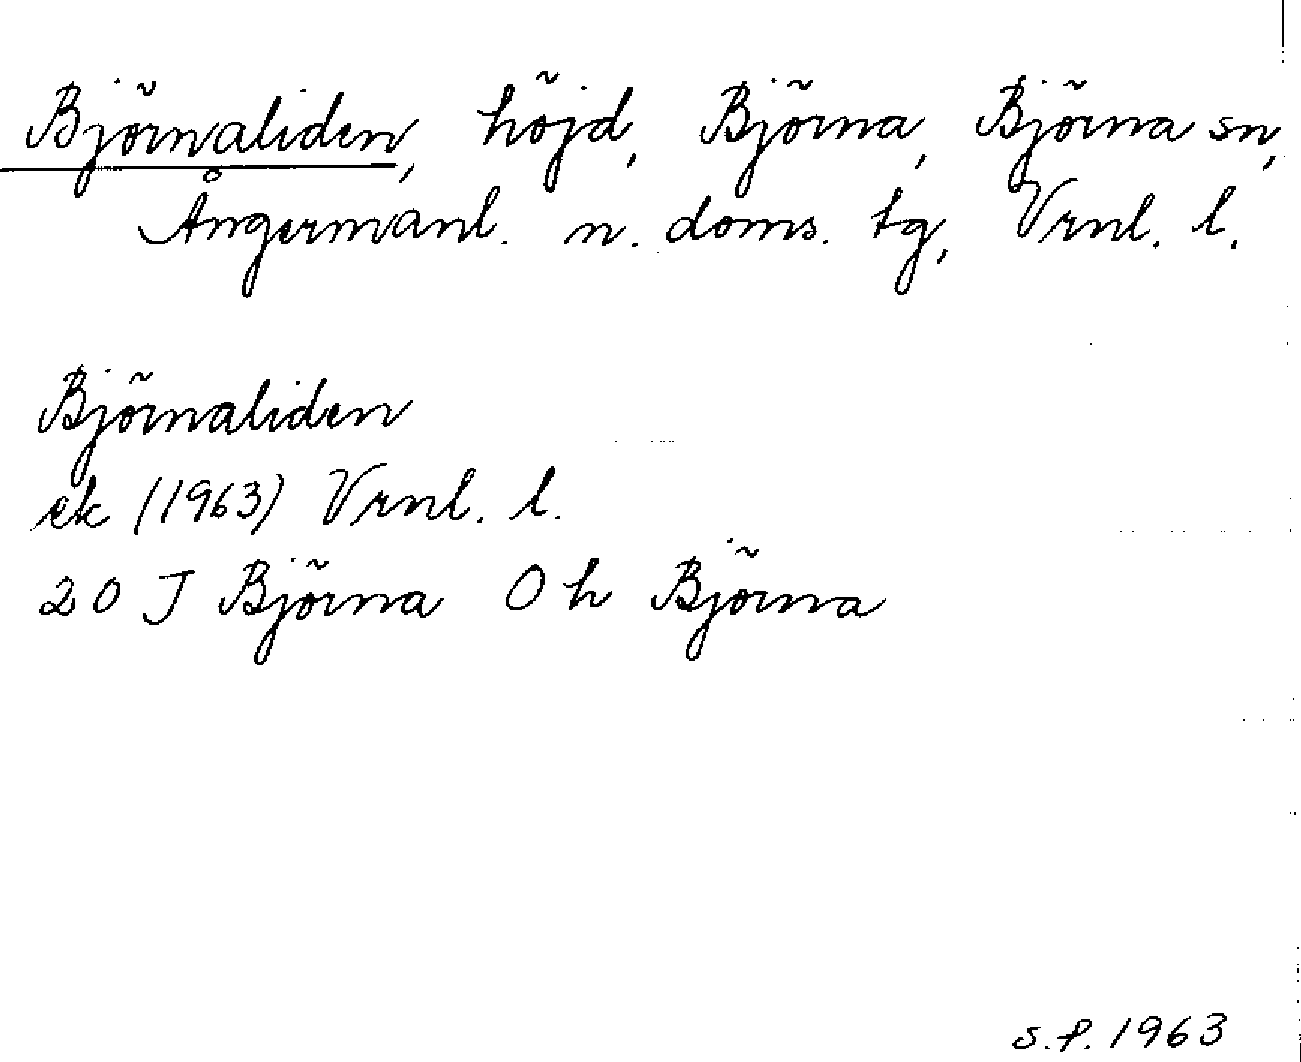 Björnaliden, höjd, Björna, Björna sn,
Ångermanl. n. doms. tg, Vrnl. l.
Björnaliden
ek (1963) Vrnl. l.
20 J Björna 0 h Björna
s.f. 1963